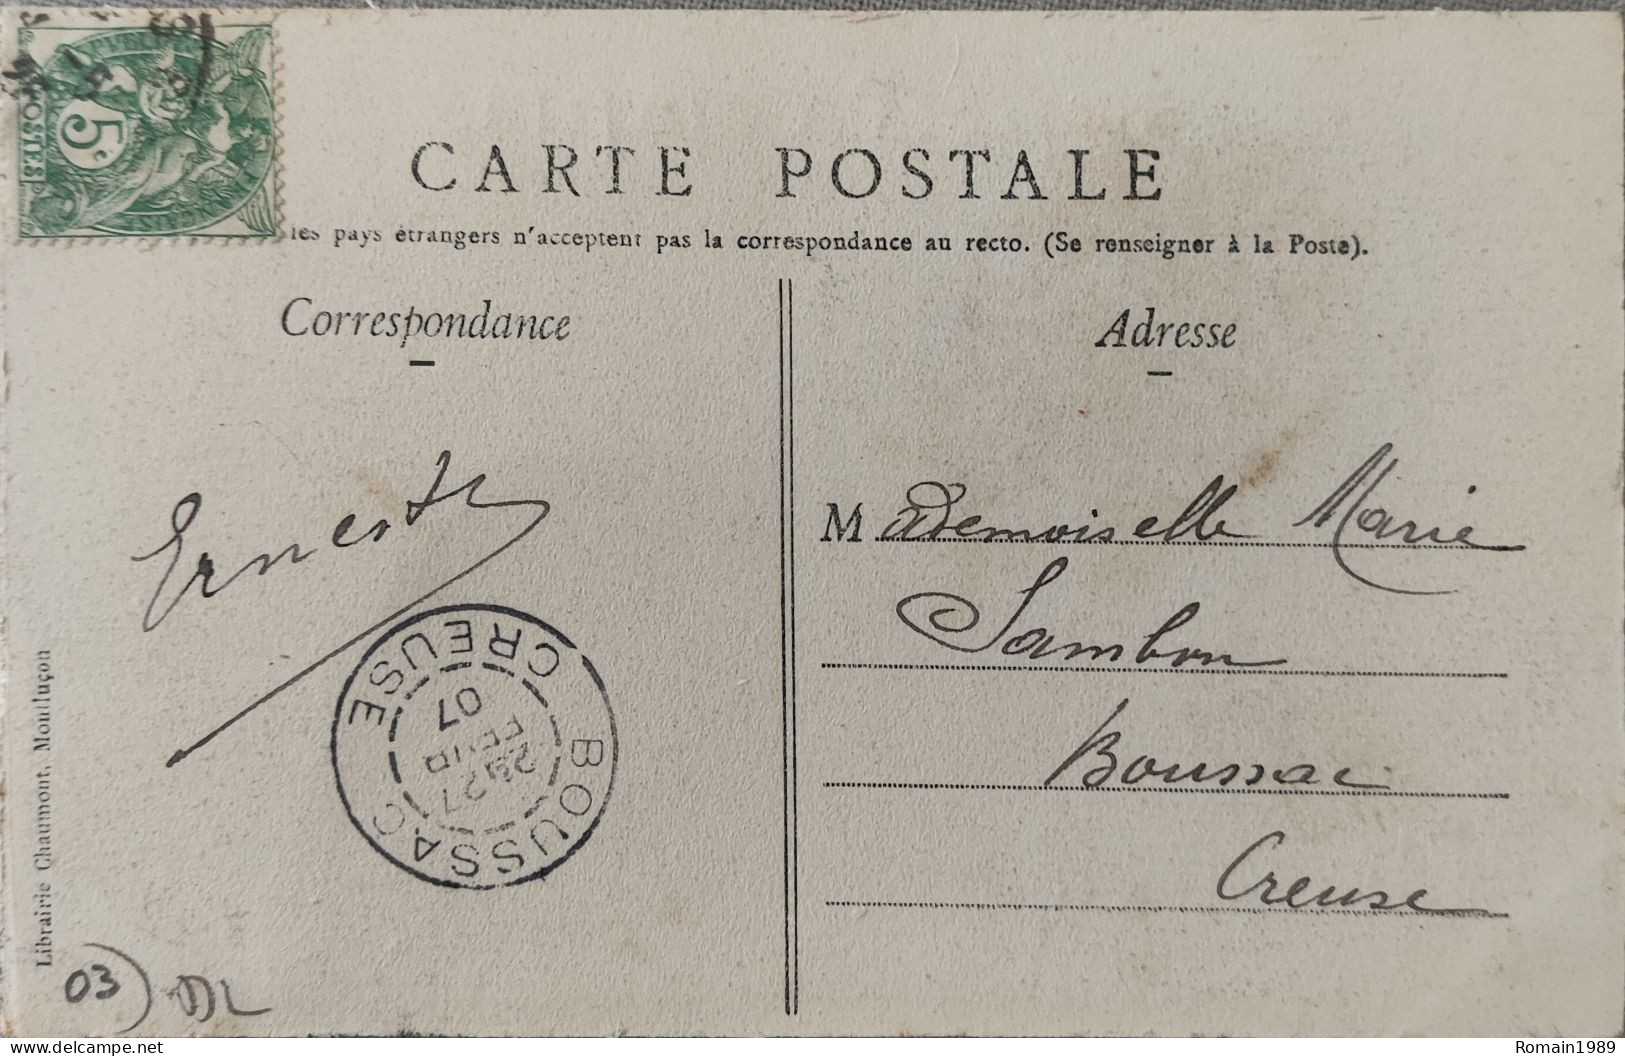 5c
POSTES
CARTE POSTALE
les pays étrangers n'acceptent pas la correspondance au recto. (Se renseigner à la Poste).
Correspondance
Adresse
Ernest
Mademoiselle Marie
Jambon
Boussac
Creuse
BOUSSAC
CREUSE
27
FEVR
07
Librairie Chaumont, Montluçon
03
DL
delcampe.net
Romain1989